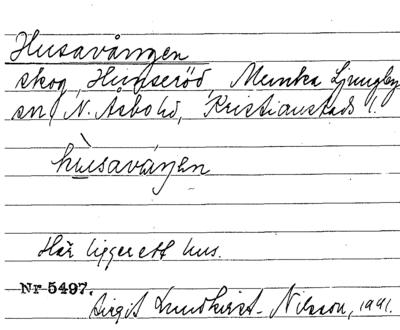 Husavången
skog, Hunseröd, Munka Ljungby
sn, N. Åsbo hd, Kristianstads l.
hùsaváŋen
Här ligger ett hus.
Nr 5497.
Birgit Lundkvist-Nilsson, 1991.